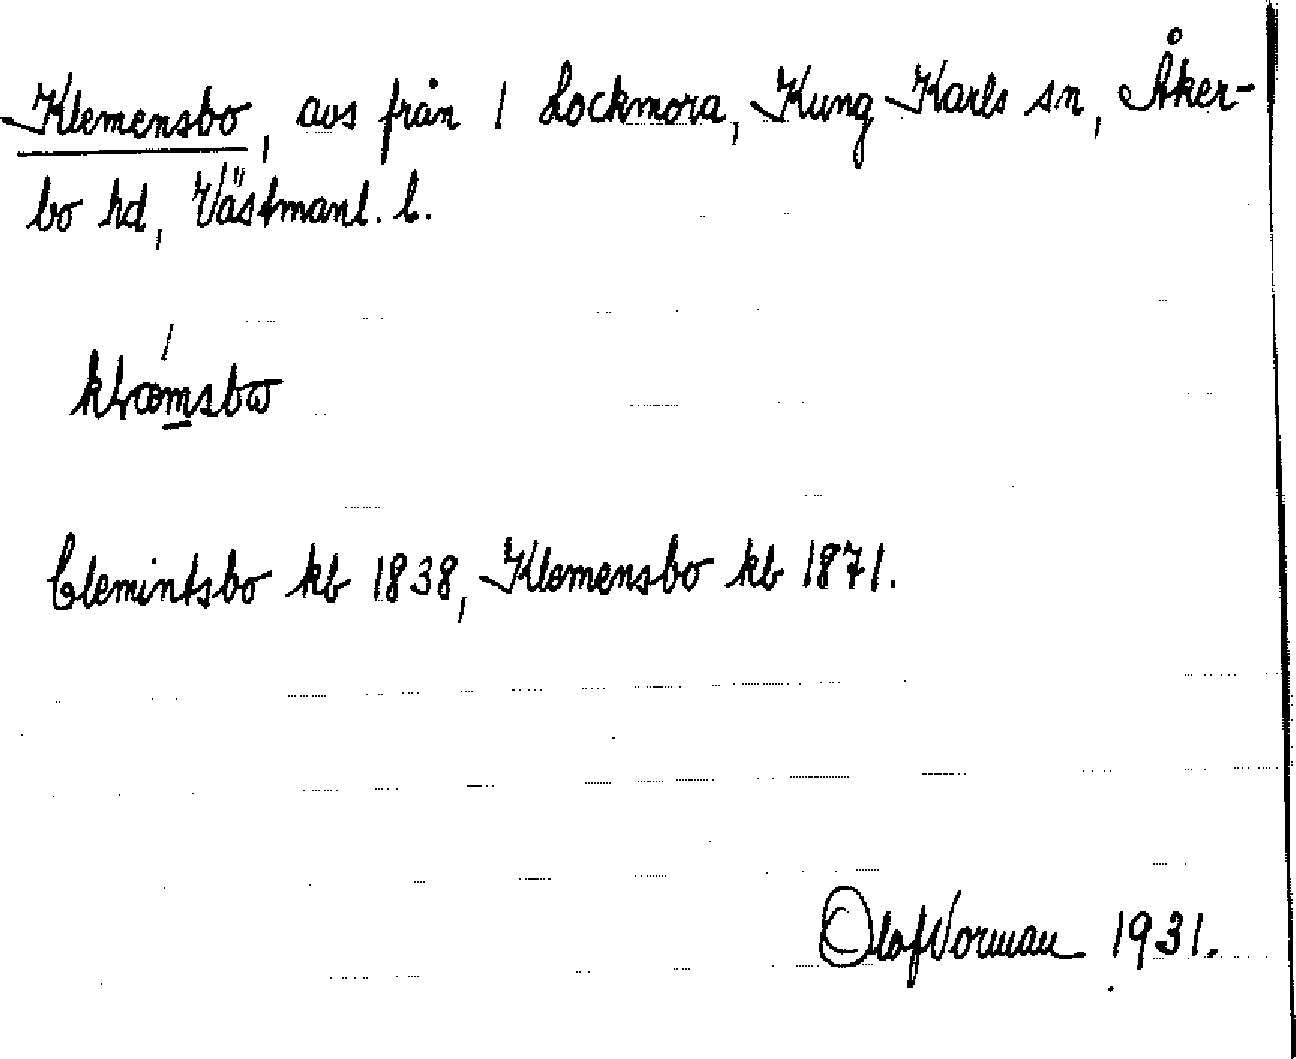 Klemensbo, avs från 1 Lockmora, Kung Karls sn, Åker-
bo hd, Västmanl. l.
klæmsbω
Clemintsbo kb 1838, Klemensbo kb 1871.
Olaf Norman 1931.